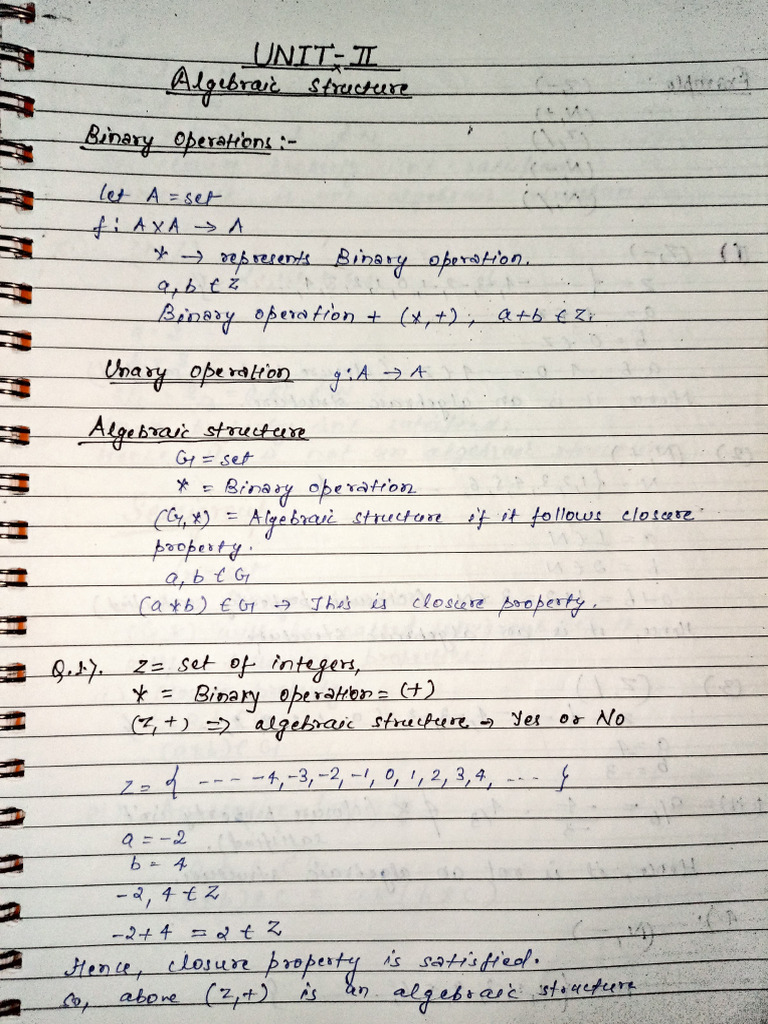 UNIT-II
Algebraic structure
Binary Operations:-
let A = set
f: A×A → A
* → represents Binary operation.
a, b ∈ Z
Binary operation + (*,+), a+b ∈ Z.
Unary operation g: A → A
Algebraic structure
G = set
* = Binary operation
(G,*) = Algebraic structure if it follows closure
property.
a, b ∈ G
(a*b) ∈ G → This is closure property.
Q.1). Z = set of integers,
* = Binary operation = (+)
(Z,+) => algebraic structure → Yes or No
Z = { ---- -4, -3, -2, -1, 0, 1, 2, 3, 4, ---- }
a = -2
b = 4
-2, 4 ∈ Z
-2+4 = 2 ∈ Z
Hence, closure property is satisfied.
So, above (Z,+) is an algebraic structure